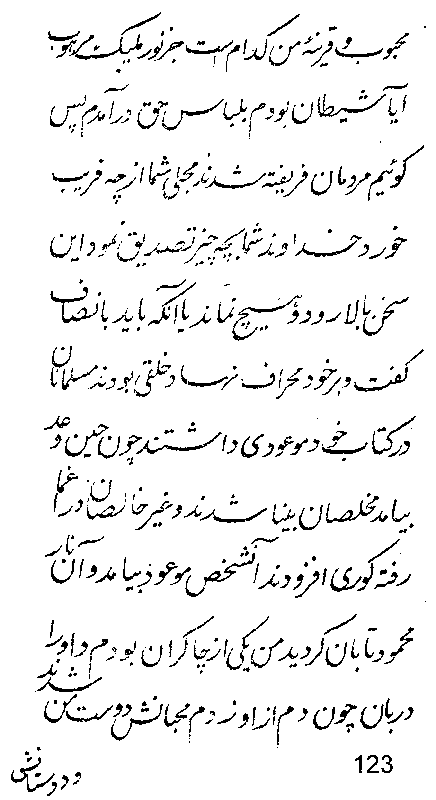 محبوب و قرینهٔ من کدام است جز نور ملیک مرهوب
ایا شیطان بودم بلباس حق در آمدم پس
گوئیم مردمان فریفته شدند مجلی شما از چه فریب
خورد خداوند شما بچه چیز تصدیق نمود این
سخن بالا رود و هیچ نماند یا آنکه باید بانصاف
گفت و بر خود محراف نهاد خلقی بودند مسلمانان
در کتاب خود موعودی داشتند چون حین وعد
بیامد مخلصان بینا شدند و غیر خالصان در اعما
رفته کوری افزودند آنشخص موعود بیامد و آن نار
محمود تابان گردید من یکی از چاکران بودم و او را
دربان چون دم از او زدم محبانش دوست من شدند
و دوستانش
123